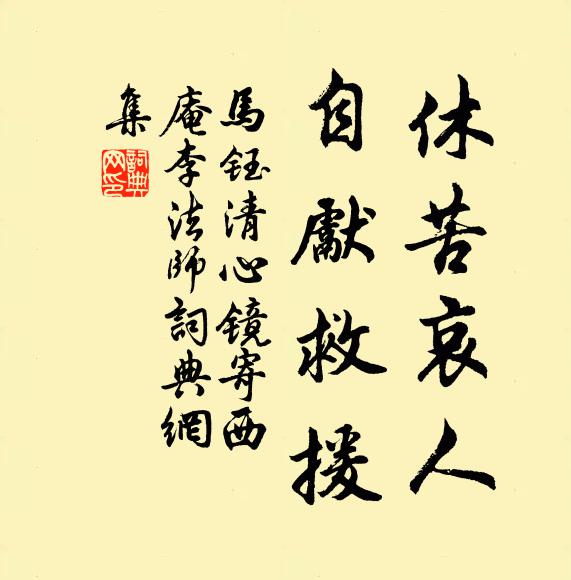 休苦哀人
自獻救援
馬鈺清心鏡寄西
庵李法師詞典網
集
詞典網印